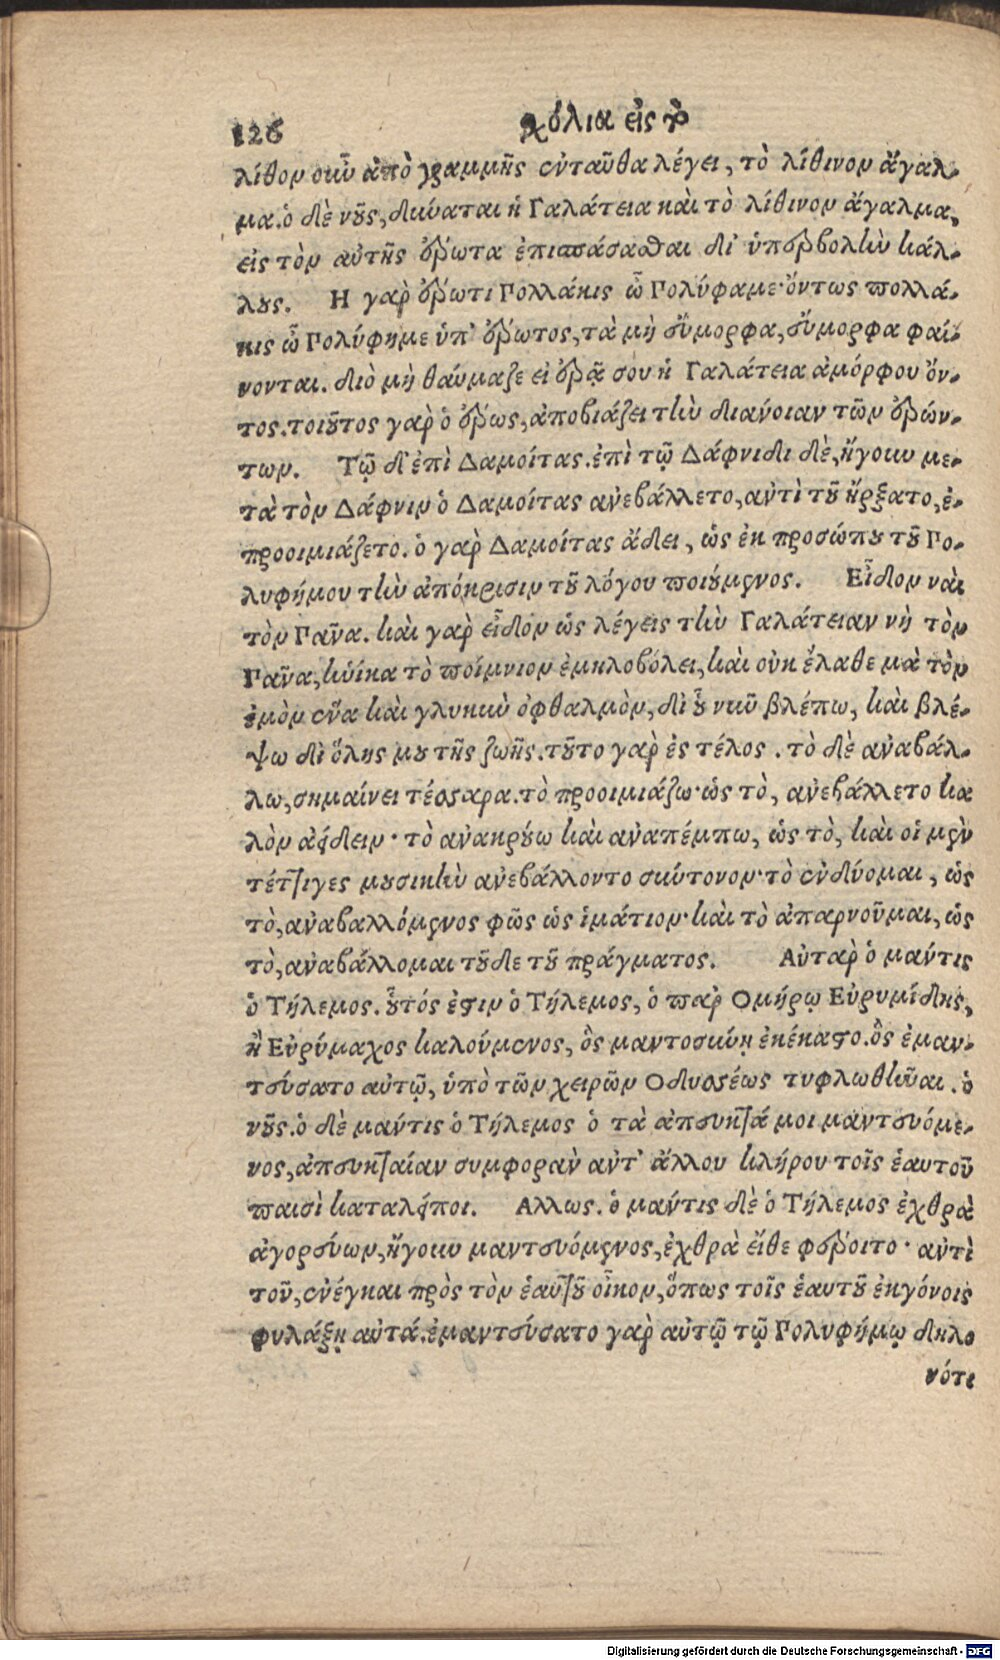 126 χόλια εἰς τ̀
λίθον οὖν ἀπὸ γραμμῆς ἐνταῦθα λέγει, τὸ λίθινον ἄγαλ-
μα. ὁ δὲ νοῦς, δύναται ἡ Γαλάτεια καὶ τὸ λίθινον ἄγαλμα,
εἰς τὸν αὐτῆς ἔρωτα ἐπισπάσασθαι δι' ὑπερβολὴν κάλ-
λους. Η γαρ ἔρωτι Πολλάκις ὦ Πολύφαμε· ὄντως πολλά-
κις ὦ Πολύφημε ὑπ' ἔρωτος, τὰ μὴ εὔμορφα, εὔμορφα φαί-
νονται. διὸ μὴ θαύμαζε εἰ ἐρᾷ σου ἡ Γαλάτεια ἀμόρφου ὄν-
τος. τοιοῦτος γαρ ὁ ἔρως, ἀποβιάζει τὴν διάνοιαν τῶν ἐρών-
των. Τῷ δ' ἐπὶ Δαμοίτας. ἐπὶ τῷ Δάφνιδι δὲ, ἤγουν με-
τὰ τὸν Δάφνιν ὁ Δαμοίτας ἀνεβάλλετο, ἀντὶ τοῦ ἤρξατο, ἐ-
προοιμιάζετο. ὁ γαρ Δαμοίτας ἄδει, ὡς ἐκ προσώπου τοῦ Πο-
λυφήμου τὴν ἀπόκρισιν τοῦ λόγου ποιούμενος. Εἶδον ναὶ
τὸν Πᾶνα. καὶ γαρ εἶδον ὡς λέγεις τὴν Γαλάτειαν νὴ τὸν
Πᾶνα, ἡνίκα τὸ ποίμνιον ἐμηλοβόλει, καὶ οὐκ ἔλαθε μὰ τὸν
ἐμὸν ἕνα καὶ γλυκὺν ὀφθαλμὸν, δι' οὗ νῦν βλέπω, καὶ βλέ-
ψω δι' ὅλης μου τῆς ζωῆς. τοῦτο γαρ ἐς τέλος. τὸ δὲ ἀναβάλ-
λω, σημαίνει τέσσαρα. τὸ προοιμιάζω· ὡς τὸ, ἀνεβάλλετο κα
λὸν ἀείδειν· τὸ ἀνακρούω καὶ ἀναπέμπω, ὡς τὸ, καὶ οἱ μὲν
τέττιγες μουσικὴν ἀνεβάλλοντο σύντονον· τὸ ἐνδύομαι, ὡς
τὸ, ἀναβαλλόμενος φῶς ὡς ἱμάτιον· καὶ τὸ ἀπαρνοῦμαι, ὡς
τὸ, ἀναβάλλομαι τοῦδε τοῦ πράγματος. Αὐταρ ὁ μάντις
ὁ Τήλεμος. οὗτός ἐστιν ὁ Τήλεμος, ὁ παρ Ομήρῳ Εὐρυμίδης,
ἢ Εὐρύμαχος καλούμενος, ὃς μαντοσύνῃ ἐκέκαστο. ὃς ἐμαν-
τεύσατο αὐτῷ, ὑπὸ τῶν χειρῶν Οδυσσέως τυφλωθῆναι. ὁ
νοῦς. ὁ δὲ μάντις ὁ Τήλεμος ὁ τὰ ἀπευκταῖά μοι μαντευόμε-
νος, ἀπευκταίαν συμφορὰν ἀντ' ἄλλου κλήρου τοῖς ἑαυτοῦ
παισὶ καταλείποι. Αλλως. ὁ μάντις δὲ ὁ Τήλεμος ἐχθρὰ
ἀγορεύων, ἤγουν μαντευόμενος, ἐχθρὰ εἴθε φέροιτο· ἀντὶ
τοῦ, ἐνέγκαι πρὸς τὸν ἑαυτοῦ οἶκον, ὅπως τοῖς ἑαυτοῦ ἐκγόνοις
φυλάξῃ αὐτά. ἐμαντεύσατο γαρ αὐτῷ τῷ Πολυφήμῳ δηλο
νότι
Digitalisierung gefördert durch die Deutsche Forschungsgemeinschaft - DFG